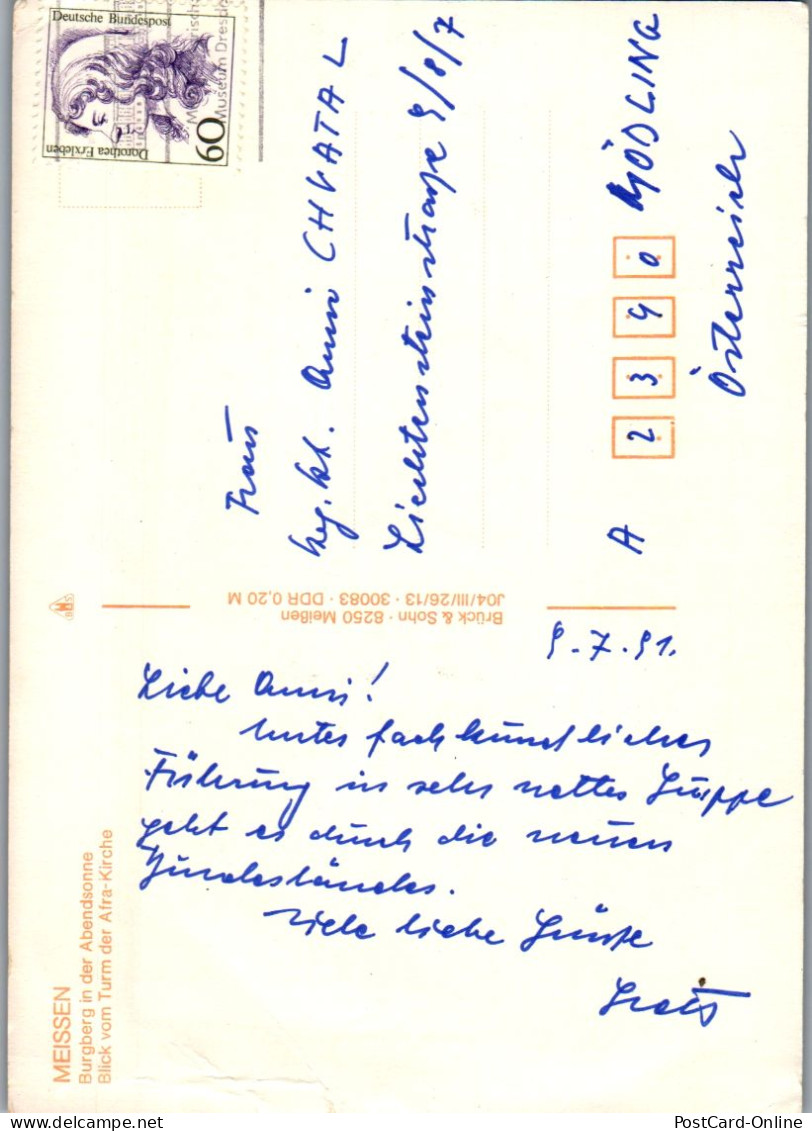 MEISSEN
Burgberg in der Abendsonne
Blick vom Turm der Afra-Kirche
Brück & Sohn · 8250 Meißen
J04/III/26/13 · 30083 · DDR 0,20 M
Deutsche Bundespost
Dorothea Erxleben
60
Museum Dresd
9.7.91.
Liebe Anni!
Unter fachkundlicher
Führung in sehr netter Gruppe
geht es durch die neuen
Bundesländer.
Viele liebe Grüße
Frau
Anni CHVATAL
Liechtensteinstraße 9/8/7
A 2340 MÖDLING
Österreich
PostCard-Online